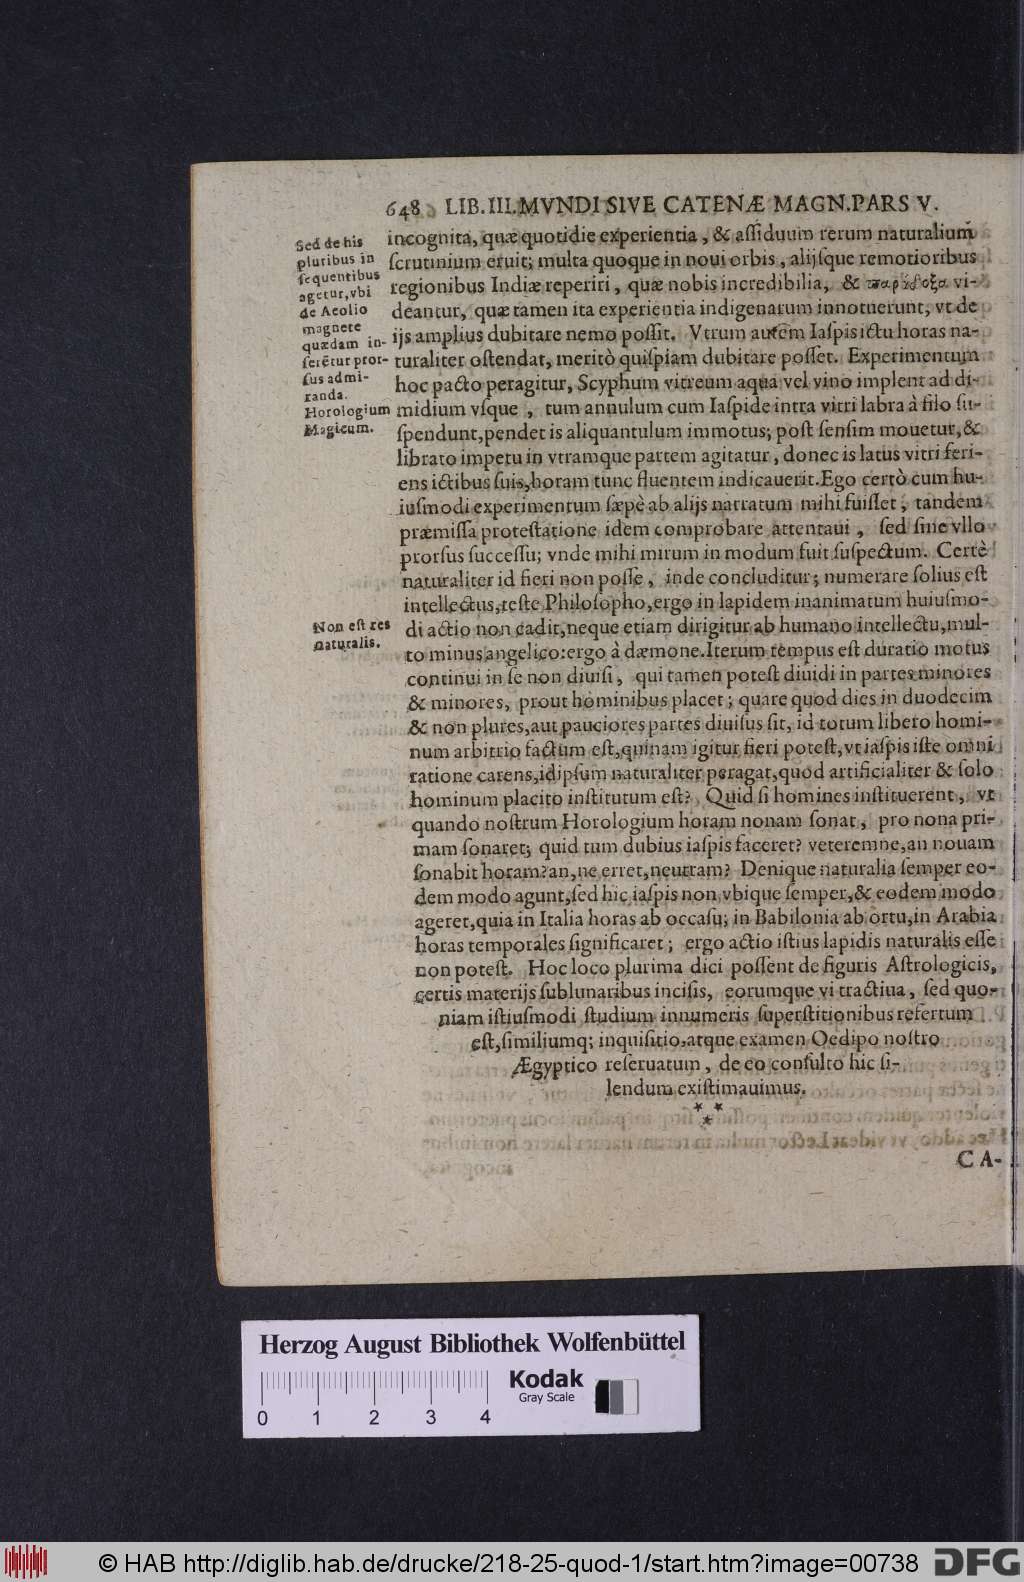 648 LIB. III. MVNDI SIVE CATENÆ MAGN. PARS V.
Sed de his
pluribus in
sequentibus
agetur, vbi
de Aeolio
magnete
quædam in-
serētur pror-
sus admi-
randa.
Horologium
Magicum.
incognita, quæ quotidie experientia, & assiduum rerum naturalium
scrutinium eruit; multa quoque in noui orbis, alijsque remotioribus
regionibus Indiæ reperiri, quæ nobis incredibilia, & παράδοξα vi-
deantur, quæ tamen ita experientia indigenarum innotuerunt, vt de
ijs amplius dubitare nemo possit. Vtrum autem Iaspis ictu horas na-
turaliter ostendat, meritò quispiam dubitare posset. Experimentum
hoc pacto peragitur, Scyphum vitreum aqua vel vino implent ad di-
midium vsque, tum annulum cum Iaspide intra vitri labra à filo su-
spendunt, pendet is aliquantulum immotus; post sensim mouetur, &
librato impetu in vtramque partem agitatur, donec is latus vitri feri-
ens ictibus suis, horam tunc fluentem indicauerit. Ego certò cum hu-
iusmodi experimentum sæpè ab alijs narratum mihi fuisset, tandem
præmissa protestatione idem comprobare attentaui, sed sine vllo
prorsus successu; vnde mihi mirum in modum fuit suspectum. Certè
naturaliter id fieri non posse, inde concluditur; numerare solius est
intellectus, teste Philosopho, ergo in lapidem inanimatum huiusmo-
Non est res
naturalis.
di actio non cadit, neque etiam dirigitur ab humano intellectu, mul-
to minus angelico: ergo â dæmone. Iterum tempus est duratio motus
continui in se non diuisi, qui tamen potest diuidi in partes minores
& minores, prout hominibus placet; quare quod dies in duodecim
& non plures, aut pauciores partes diuisus sit, id totum libero homi-
num arbitrio factum est, quinam igitur fieri potest, vt iaspis iste omni
ratione carens, idipsum naturaliter peragat, quod artificialiter & solo
hominum placito institutum est? Quid si homines instituerent, vt
quando nostrum Horologium horam nonam sonat, pro nona pri-
mam sonaret; quid tum dubius iaspis faceret? veteremne, an nouam
sonabit horam? an, ne erret, neutram? Denique naturalia semper eo-
dem modo agunt, sed hic iaspis non vbique semper, & eodem modo
ageret, quia in Italia horas ab occasu; in Babilonia ab ortu, in Arabia
horas temporales significaret; ergo actio istius lapidis naturalis esse
non potest. Hoc loco plurima dici possent de figuris Astrologicis,
certis materijs sublunaribus incisis, eorumque vi tractiua, sed quo-
niam istiusmodi studium innumeris superstitionibus refertum
est, similiumq; inquisitio, atque examen Oedipo nostro
Ægyptico reseruatum, de eo consulto hic si-
lendum existimauimus.
* * *
CA-
Herzog August Bibliothek Wolfenbüttel
Kodak
Gray Scale
0 1 2 3 4
© HAB http://diglib.hab.de/drucke/218-25-quod-1/start.htm?image=00738
DFG